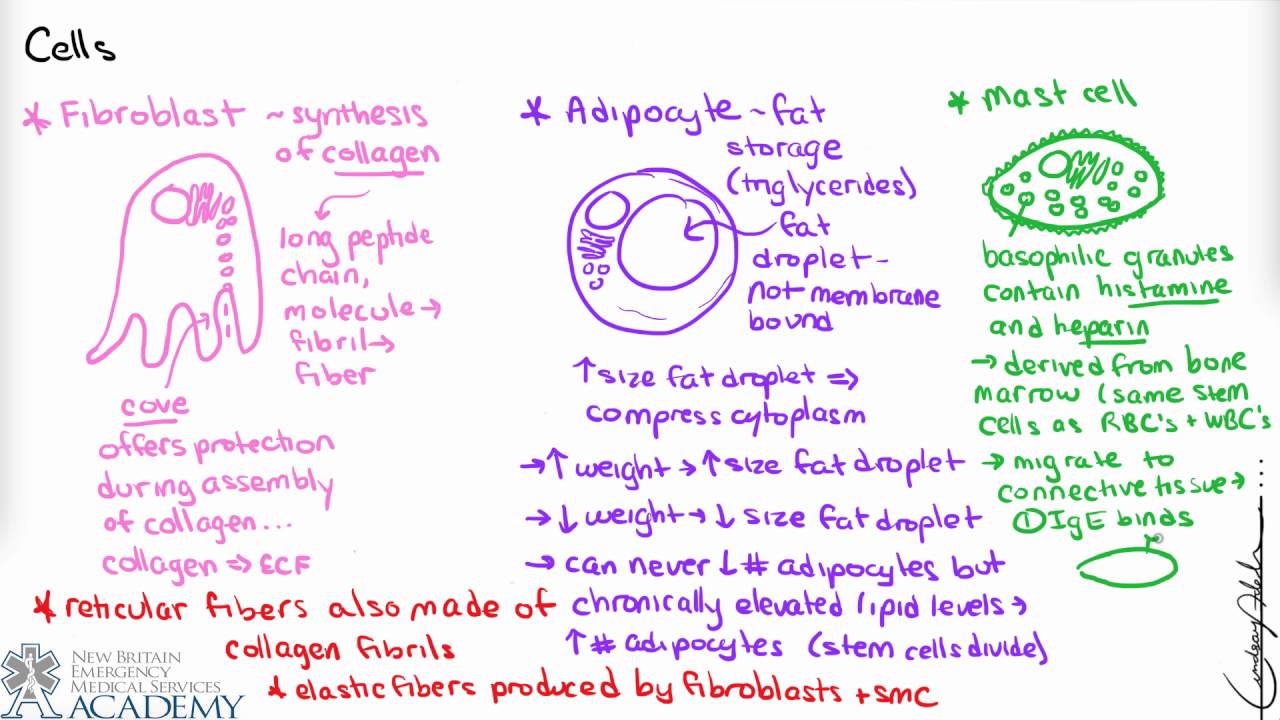 Cells
* Fibroblast ~ synthesis
of collagen
long peptide
chain,
molecule →
fibril →
fiber
cove
offers protection
during assembly
of collagen...
collagen => ECF
* Adipocyte ~ fat
storage
(triglycerides)
fat
droplet -
not membrane
bound
↑ size fat droplet =>
compress cytoplasm
→ ↑ weight → ↑ size fat droplet
→ ↓ weight → ↓ size fat droplet
→ can never ↓ # adipocytes but
chronically elevated lipid levels →
↑ # adipocytes (stem cells divide)
* Mast cell
basophilic granules
contain histamine
and heparin
→ derived from bone
marrow (same stem
cells as RBC's + WBC's
→ migrate to
connective tissue →
① IgE binds
* reticular fibers also made of
collagen fibrils
* elastic fibers produced by fibroblasts + smc
NEW BRITAIN
EMERGENCY
MEDICAL SERVICES
ACADEMY